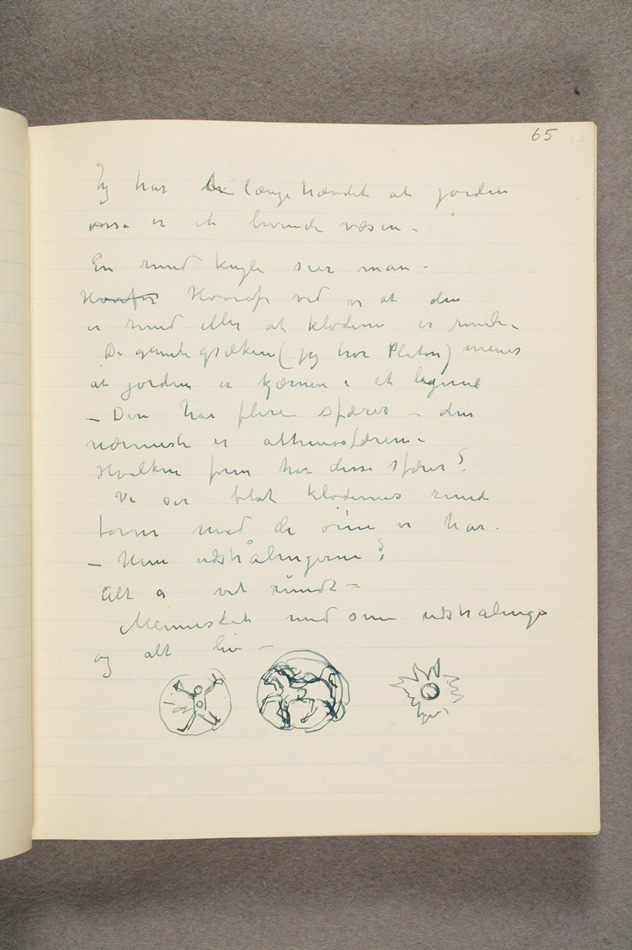 65
Jeg har længe hævdet at jorden
vorse er et levende væsen –
En rund kugle sier man –
Hvorfor Hvorofr ved vi at den
er rund eller at kloderne er runde –
De gamle grækere (jeg tror Platon) menes
at jorden er kjærnen i et legeme
– Den har flere sfærer – den
nærmeste er atthmosfæren –
Hvilken form har disse sfærer?
Vi ser blot klodernes runde
former med de öine vi har.
– Men udstrålingerne?
Alt er vel rundt –
Mennisket med sine udstrålinge
og alt liv –